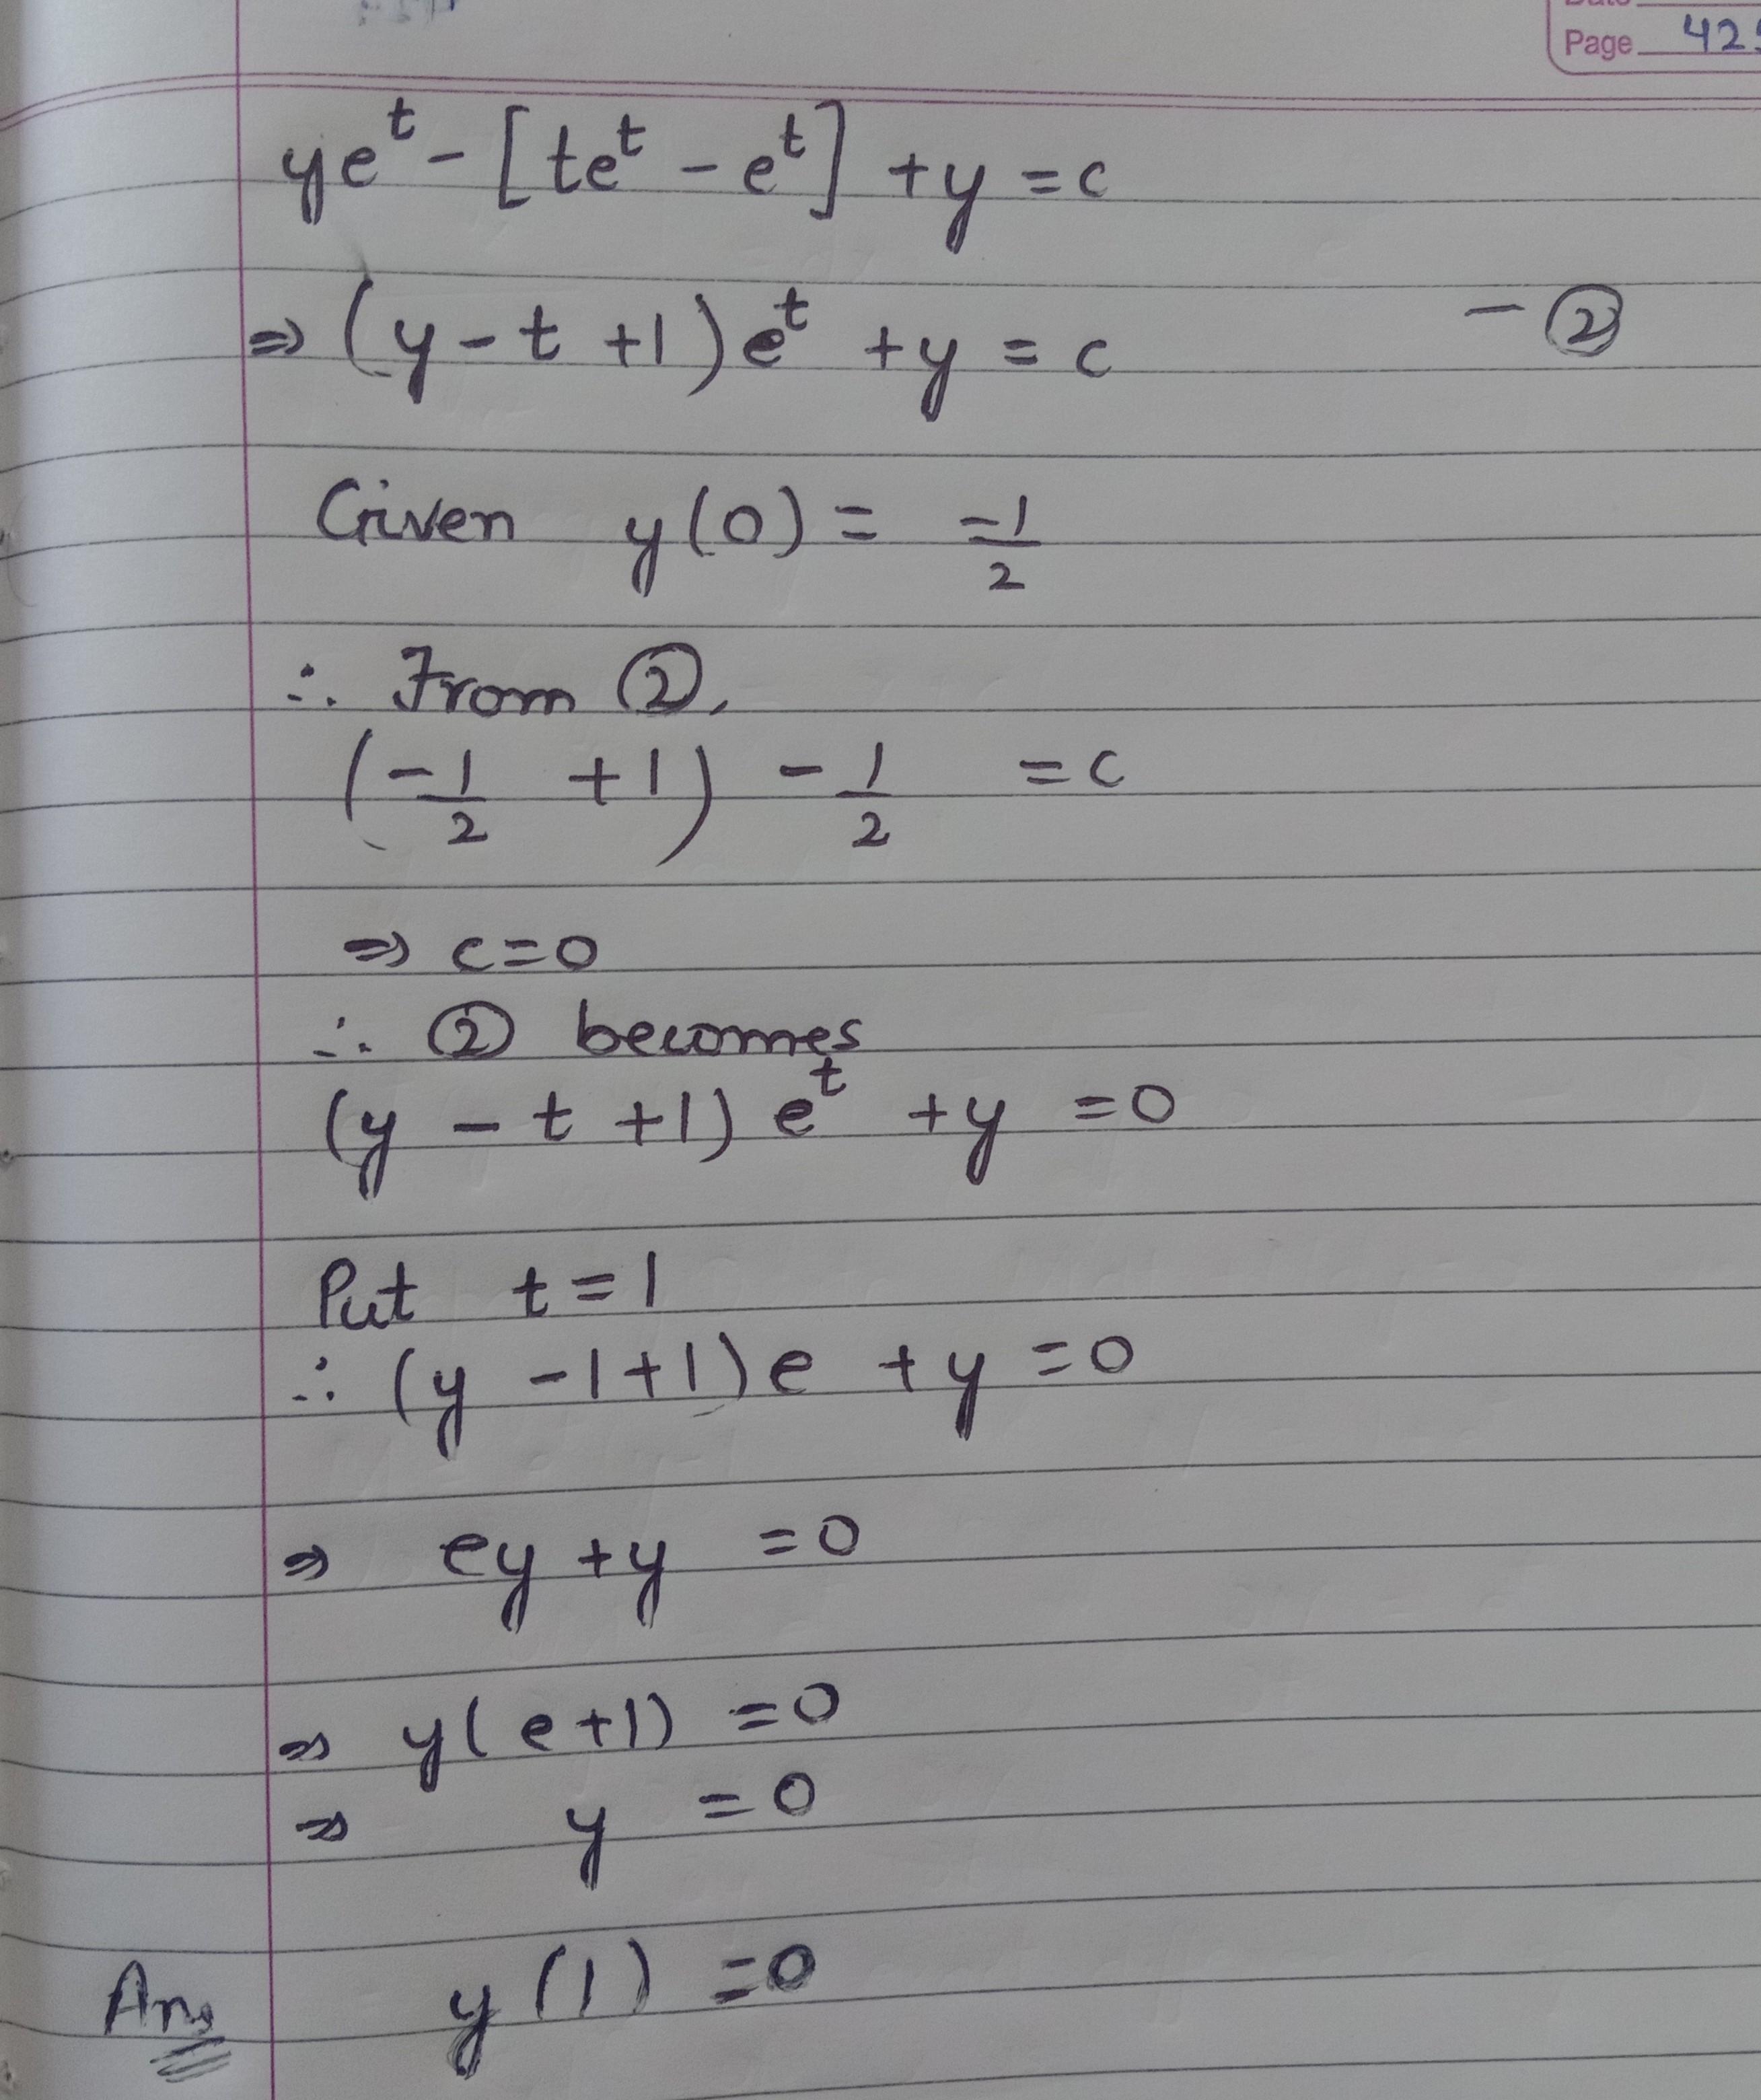 Page 42
ye^t - [te^t - e^t] + y = c
⇒ (y - t + 1) e^t + y = c - ②
Given y(0) = -1/2
∴ From ②,
(-1/2 + 1) - 1/2 = c
⇒ c = 0
∴ ② becomes
(y - t + 1) e^t + y = 0
Put t = 1
∴ (y - 1 + 1) e + y = 0
⇒ ey + y = 0
⇒ y(e + 1) = 0
⇒ y = 0
Ans y(1) = 0